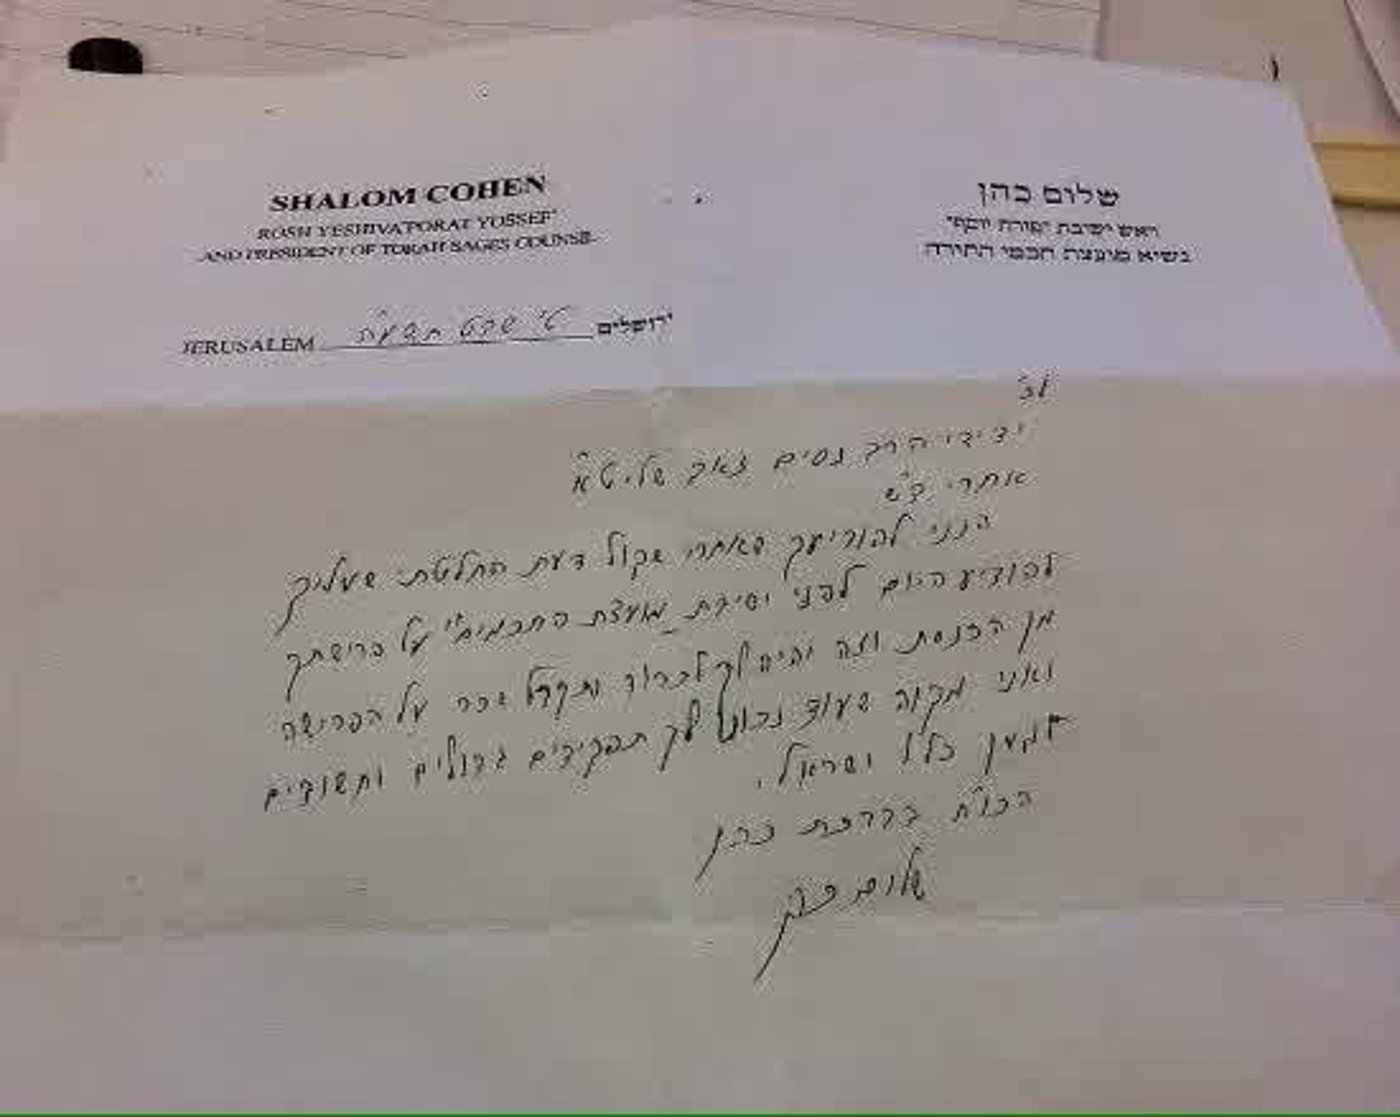 SHALOM COHEN
ROSH YESHIVA 'PORAT YOSSEF'
AND PRESIDENT OF TORAH SAGES COUNSIL
שלום כהן
ראש ישיבת 'פורת יוסף'
נשיא מועצת חכמי התורה
JERUSALEM ט' שבט תשע"ה ירושלים
לכ'
ידידי הרב נסים זאב שליט"א
אחרי בש'
הנני להודיעך שאחרי שקול דעת החלטתי שעליך
להודיע היום לפני ישיבת "מועצת החכמים" על פרישתך
מן הכנסת וזה יהיה לך לברכה ותקבל שכר על הפרישה
ואני מקוה שעוד נכונו לך תפקידים גדולים וחשובים
למען כלל ישראל.
הכו"ח בברכת כהן
שלום כהן